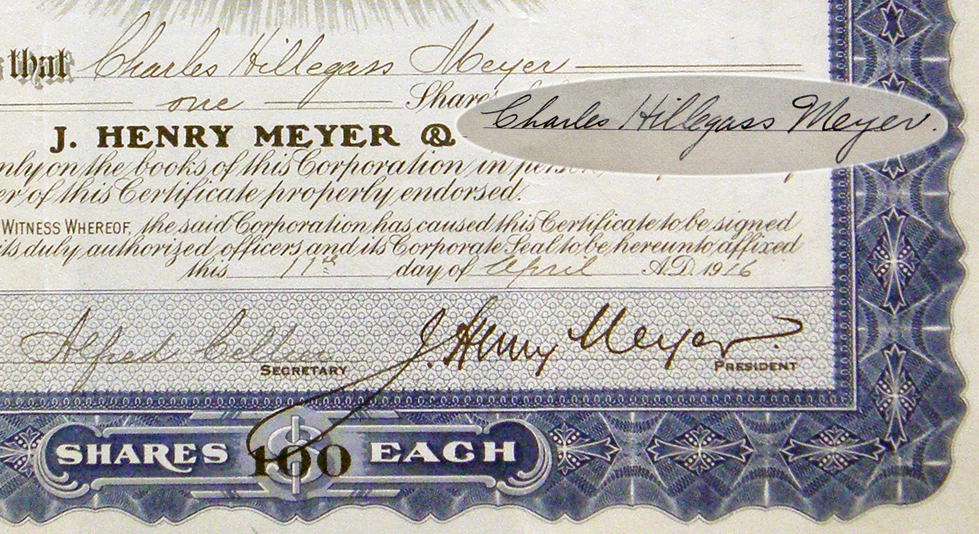 that Charles Hillegass Meyer
one Share
Charles Hillegass Meyer.
J. HENRY MEYER &
only on the books of this Corporation in person,
er of this Certificate properly endorsed.
WITNESS WHEREOF, the said Corporation has caused this Certificate to be signed
its duly authorized officers and its Corporate Seal to be hereunto affixed
this 11th day of April A.D. 1916
Alfred Cellier J. Henry Meyer.
SECRETARY PRESIDENT
SHARES $100 EACH